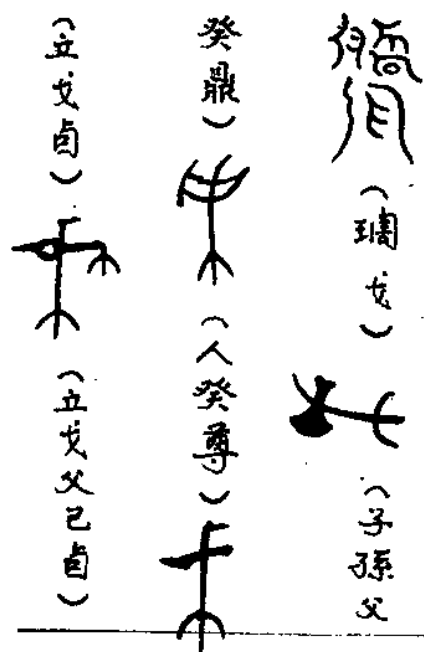 （琱戈）（子孫父
癸鼎）（人癸尊）
（立戈卣）（立戈父己卣）